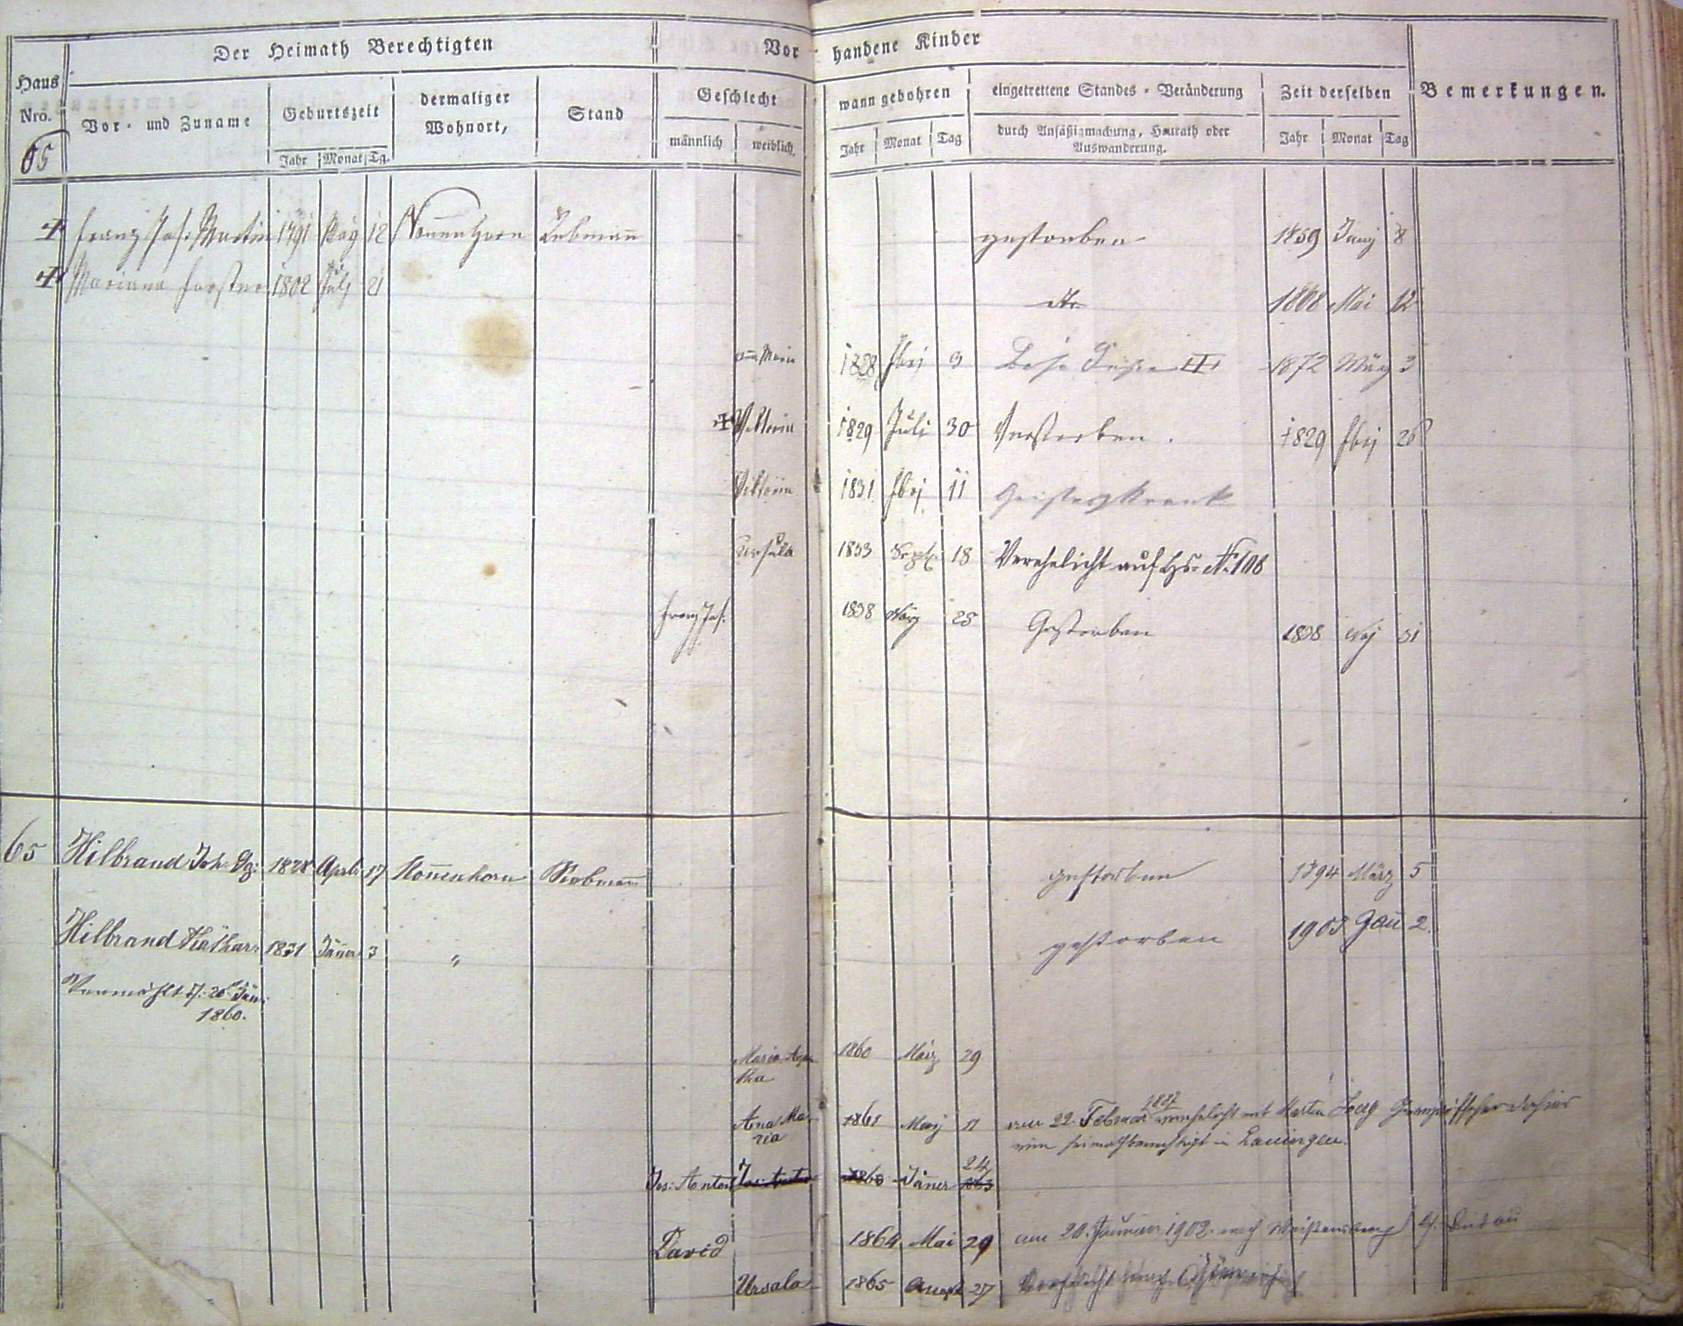 Der Heimath Berechtigten
Vorhandene Kinder
Haus Nro.
Vor- und Zuname
Geburtszeit
Jahr Monat Tg.
dermaliger Wohnort,
Stand
Geschlecht
männlich weiblich.
wann gebohren
Jahr Monat Tag
eingetrettene Standes-Veränderung
durch Ansäßigmachung, Heurath oder
Auswanderung.
Zeit derselben
Jahr Monat Tag
Bemerkungen.
65
Franz Jos. Martin 1791 12 Nonnenhorn Rebmann gestorben 1859 Juny 8
Mariana Forster 1802 July 21 1868 Mai 12
Maria 1828 9 1872 März 3
Viktoria 1829 Juli 30 Verstorben. 1829
Viktoria 1831 11 Geisteskrank
Ursula 1833 Sept. 18 Verehelicht auf Hs. No. 108
Franz Jos. 1838 März 25 Gestorben 1838 31
65 Hilbrand Joh. Gg: 1828 April 17 Nonnenhorn Rebmann gestorben 1894 März 5
Hilbrand Kathar. 1831 Jäner 3 " gestorben 1903 2.
Vermählt d: 26t Jän:
1860.
Maria Aga-
tha 1860 März 29
Anna Ma-
ria 1861 May 11 am 22. Februar 1887 verehelicht mit Martin
in Lauingen.
Jos: Anton Jos: Anton Jäner 24
David 1864 Mai 29 am 20. Januar 1902 nach Weißensberg
Ursula 1865 August 27 Verehelicht